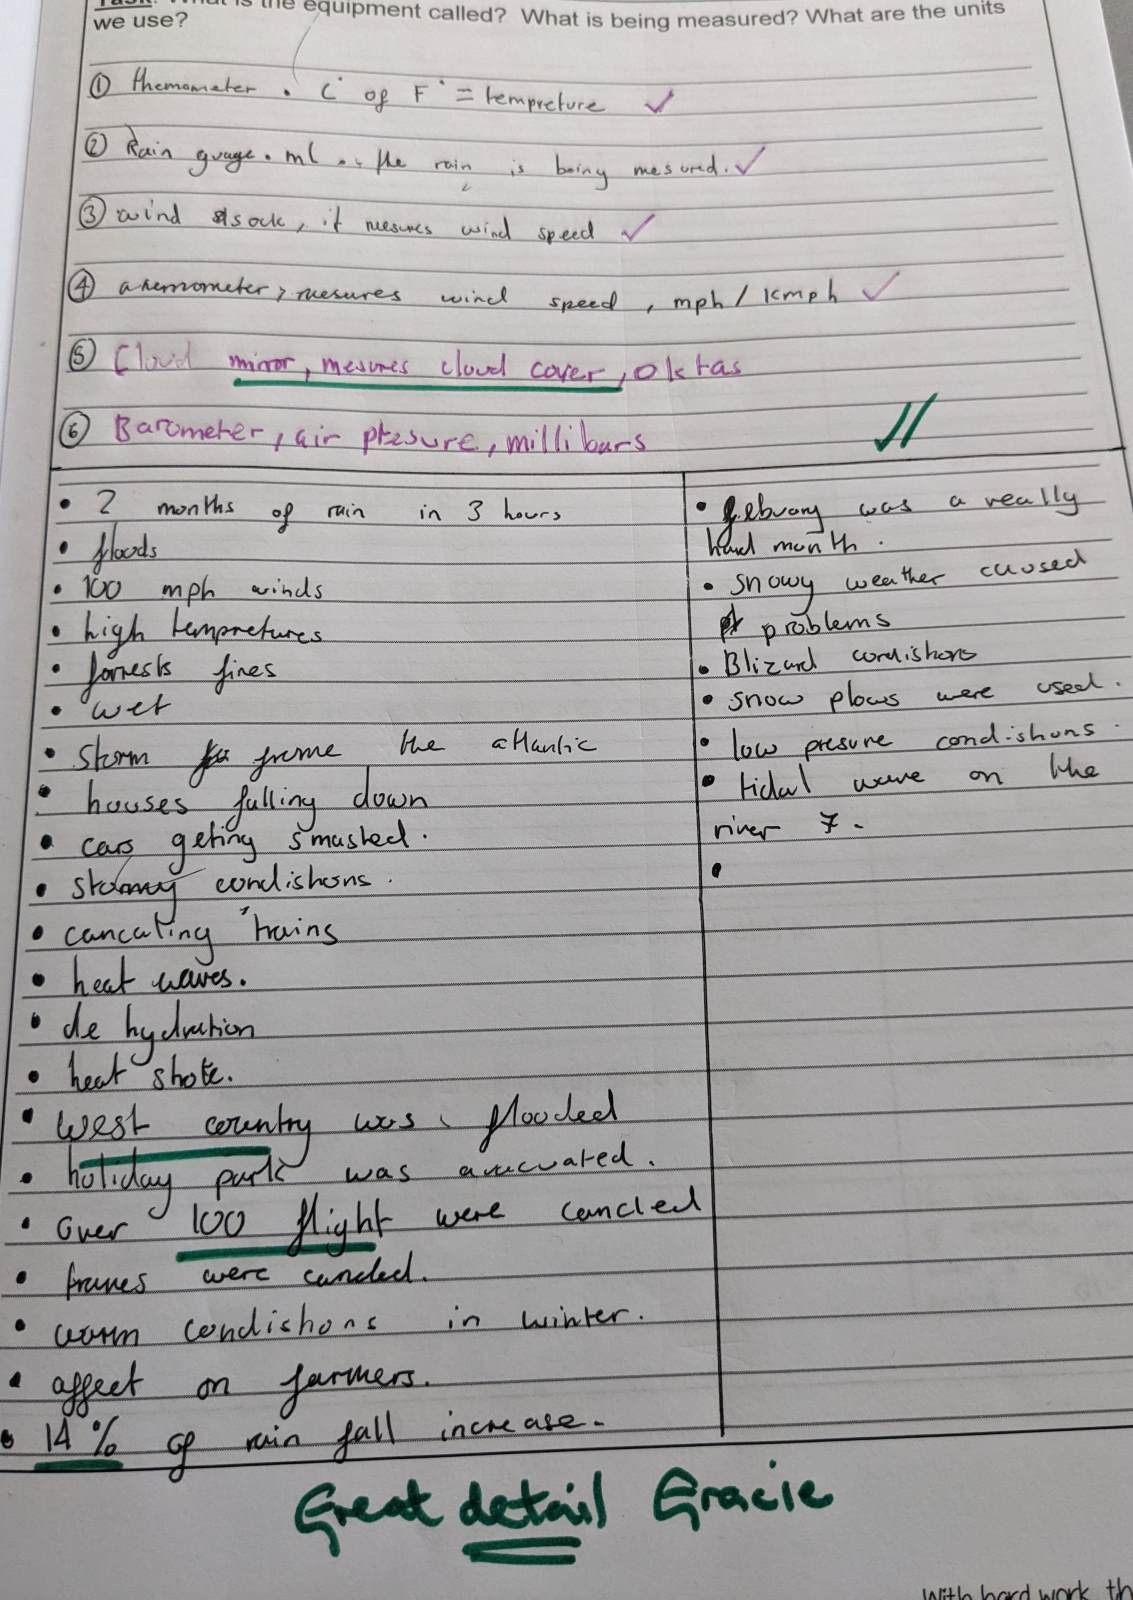 is the equipment called? What is being measured? What are the units
we use?
① themometer . C° of F° = tempreture ✓
② Rain guage . ml . the rain is being mesured. ✓
③ wind sock, it mesures wind speed ✓
④ anemometer, mesures wind speed, mph / kmph ✓
⑤ Cloud mirror, mesures cloud cover, oktas
⑥ Barometer, air presure, millibars
• 2 months of rain in 3 hours
• floods
• 100 mph winds
• high tempretures
• forrests fires
• wet
• storm frome the atlantic
• houses falling down
• cars geting smashed.
• stormy condishons.
• cancaling trains
• heat waves.
• de hydration
• heat shote.
• west country was flooded
• holiday park was avucuated.
• over 100 flight were cancled
• tranes were cancled.
• warm condishons in winter.
• affect on farmers.
• 14% of rain fall increase.
• febuary was a really
hard month.
• snowy weather caused
problems
• Blizard condishons
• snow plows were used.
• low presure condishons.
• tidal wave on the
river 7.
•
Great detail Gracie
With hard work, th